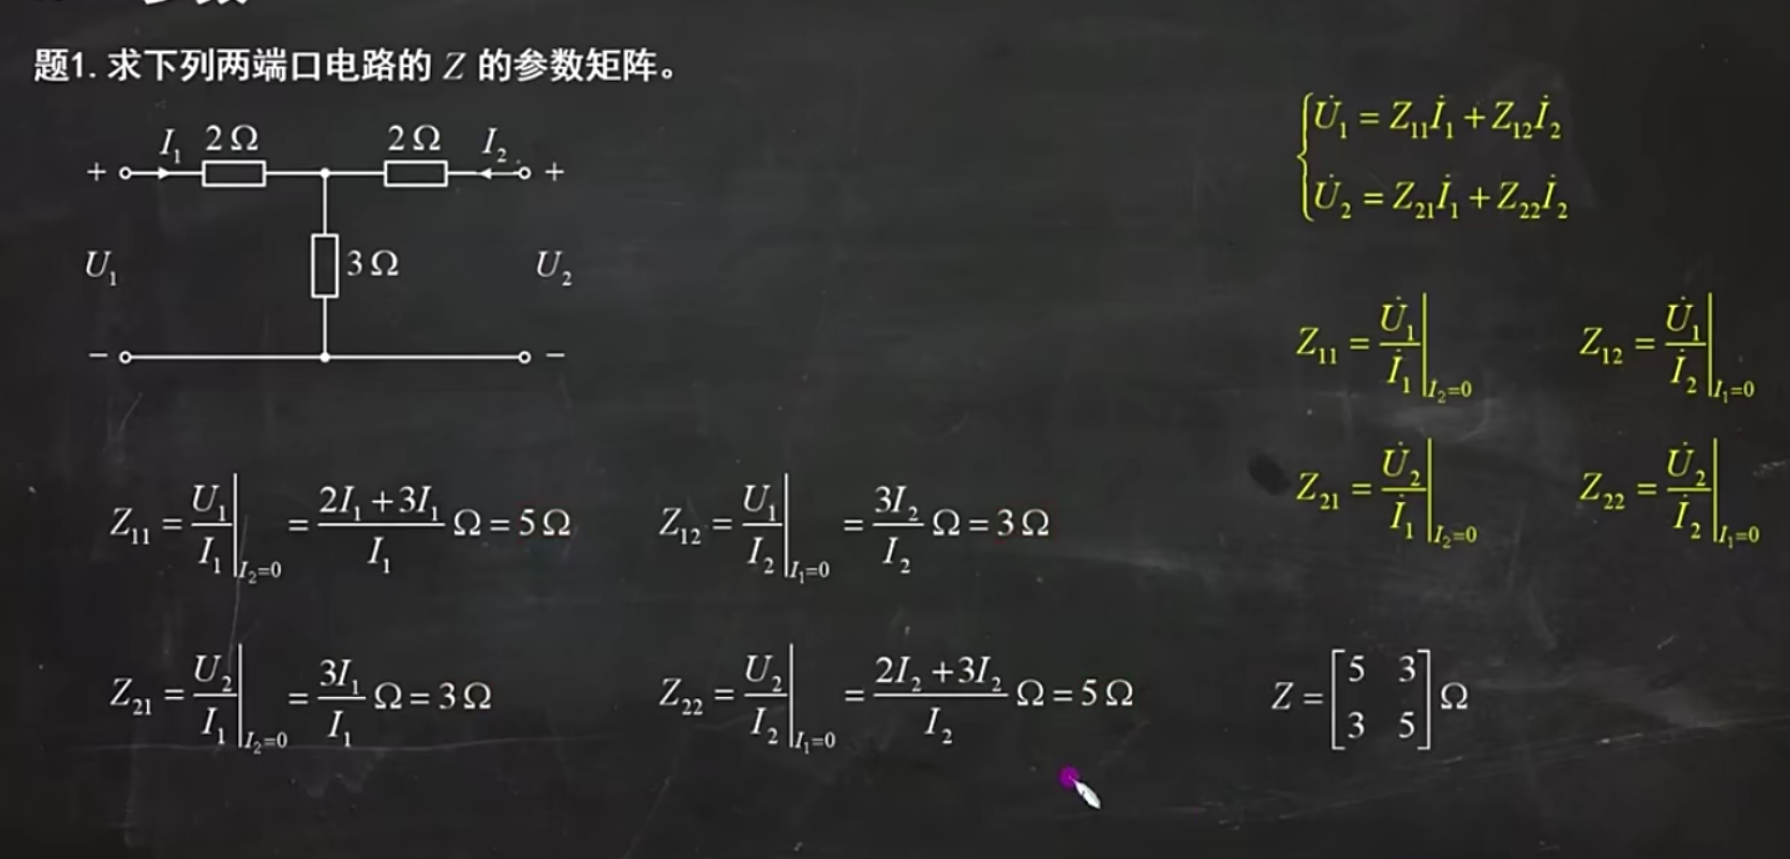 题1. 求下列两端口电路的 Z 的参数矩阵。
I₁ 2Ω 2Ω I₂
+ +
U₁ 3Ω U₂
− −
U̇₁ = Z₁₁İ₁ + Z₁₂İ₂
U̇₂ = Z₂₁İ₁ + Z₂₂İ₂
Z₁₁ = U̇₁/İ₁ |I₂=0 Z₁₂ = U̇₁/İ₂ |I₁=0
Z₂₁ = U̇₂/İ₁ |I₂=0 Z₂₂ = U̇₂/İ₂ |I₁=0
Z₁₁ = U₁/I₁ |I₂=0 = (2I₁+3I₁)/I₁ Ω = 5Ω Z₁₂ = U₁/I₂ |I₁=0 = 3I₂/I₂ Ω = 3Ω
Z₂₁ = U₂/I₁ |I₂=0 = 3I₁/I₁ Ω = 3Ω Z₂₂ = U₂/I₂ |I₁=0 = (2I₂+3I₂)/I₂ Ω = 5Ω
Z = [5 3
3 5] Ω